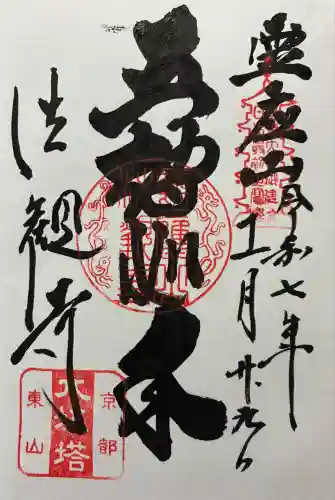 霊応山
令和七年
十一月廿九日
五智如来
法観寺
京都
八坂塔
東山